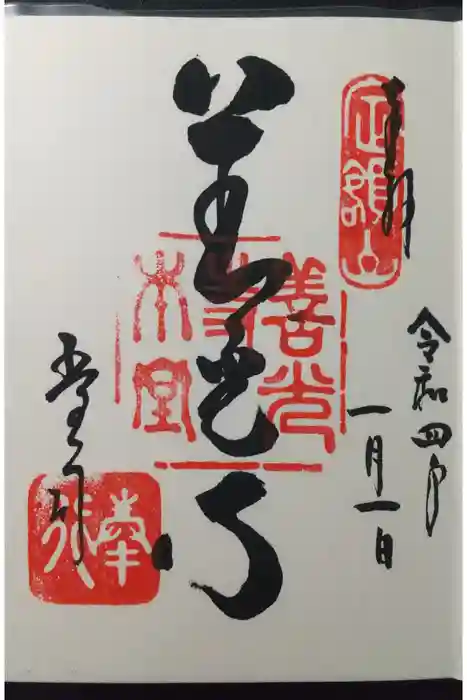 奉拝
定額山
令和四年
一月一日
善光寺
善光
寺
本堂
奉行